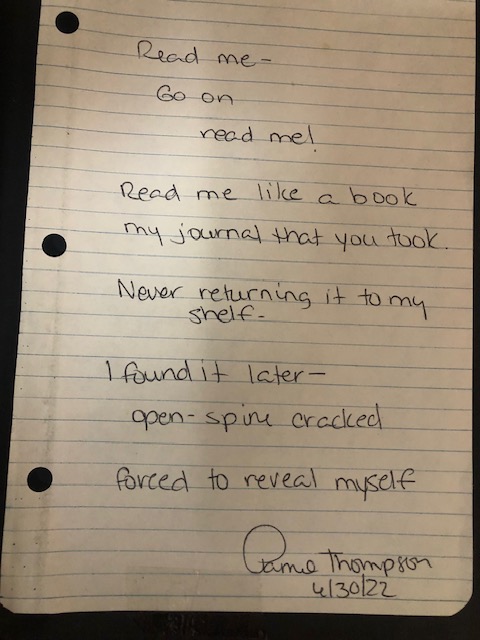 Read me-
Go on
read me!
Read me like a book
my journal that you took.
Never returning it to my
shelf-
I found it later-
open-spine cracked
forced to reveal myself
Thompson
4/30/22